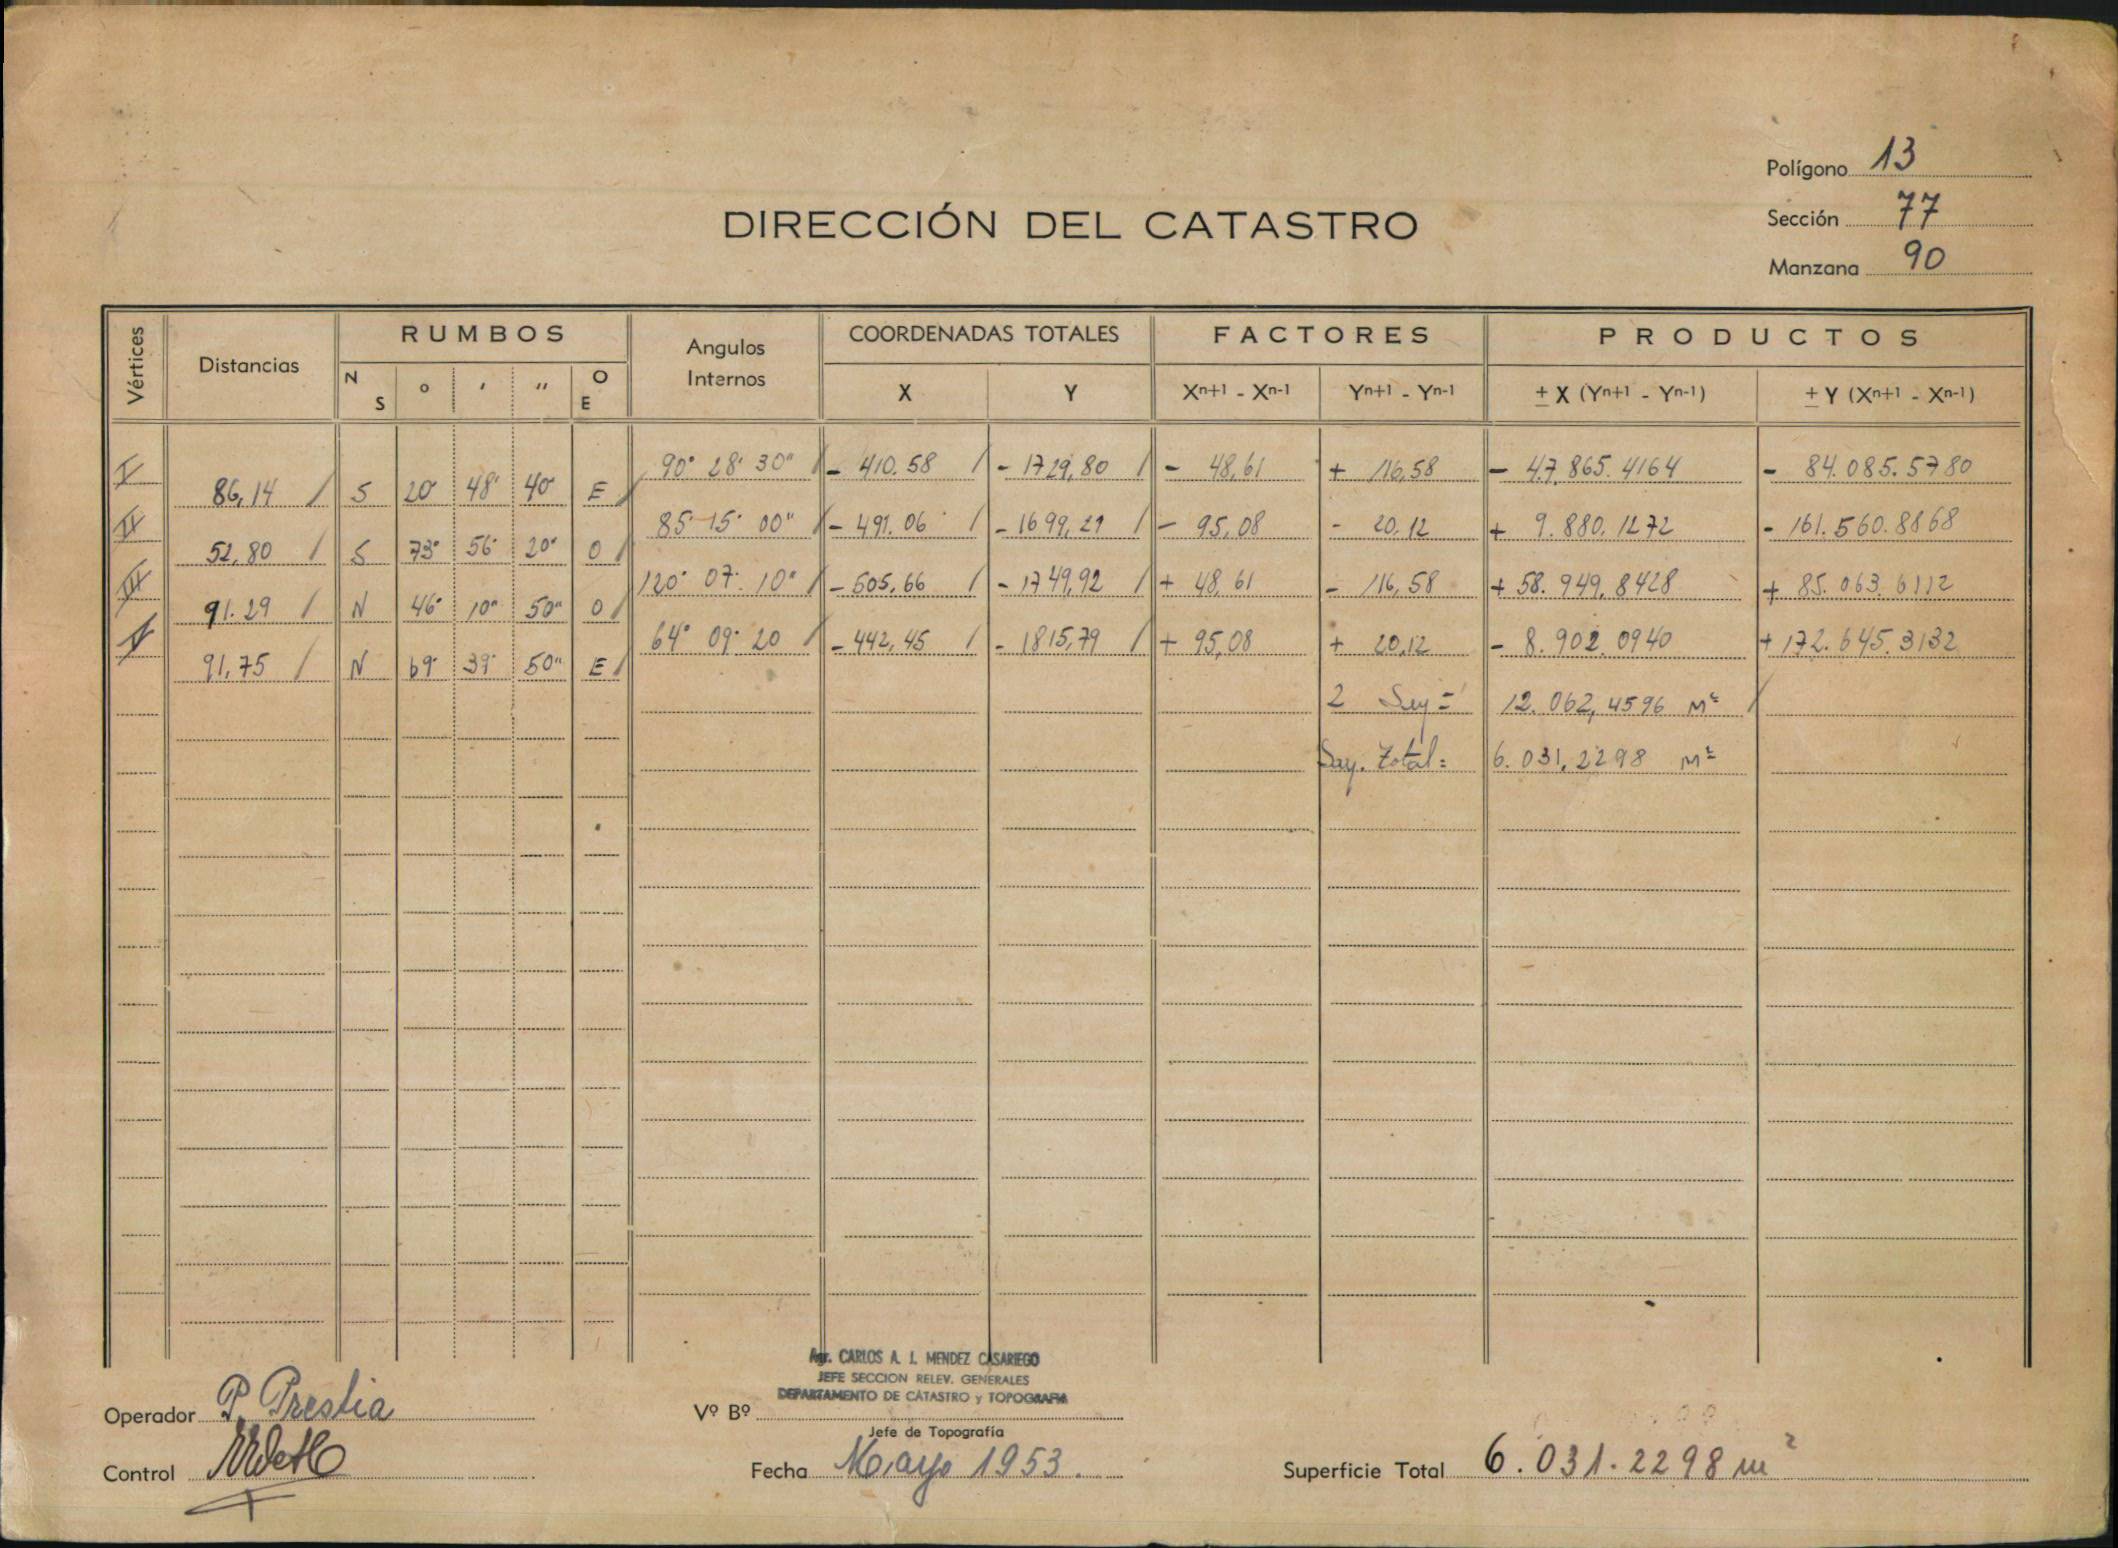 Polígono 13
Sección 77
Manzana 90
DIRECCIÓN DEL CATASTRO
Vértices Distancias RUMBOS Angulos Internos COORDENADAS TOTALES FACTORES PRODUCTOS
N S ° ' " O E X Y Xn+1 - Xn-1 Yn+1 - Yn-1 ± X (Yn+1 - Yn-1) ± Y (Xn+1 - Xn-1)
I 90° 28' 30" - 410.58 - 1729,80 - 48,61 + 116,58 - 47.865.4164 - 84.085.5780
86,14 S 20° 48' 40" E
II 85° 15' 00" - 491.06 - 1699,21 - 95,08 - 20,12 + 9.880,1272 - 161.560.8868
52,80 S 73° 56' 20" O
III 120° 07' 10" - 505,66 - 1749,92 + 48,61 - 116,58 + 58.949,8428 + 85.063.6112
91.29 N 46° 10" 50" O
IV 64° 09' 20 - 442,45 - 1815,79 + 95,08 + 20,12 - 8.902.0940 + 172.645.3132
91,75 N 69° 39' 50" E
2 Sup = 12.062,4596 M²
Sup. Total = 6.031,2298 M²
Agr. CARLOS A. I. MENDEZ CASARIEGO
JEFE SECCION RELEV. GENERALES
DEPARTAMENTO DE CATASTRO y TOPOGRAFIA
Operador P. Prestia Vº Bº
Jefe de Topografía
Control Fecha Mayo 1953. Superficie Total 6.031.2298 m²